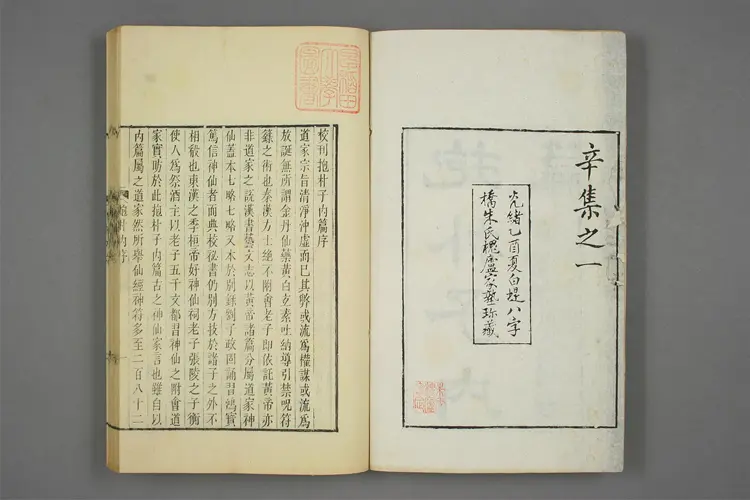 辛集之一
光緒乙酉夏白堤八字
橋朱氏槐廬家塾珍藏
早稻田
大學
圖書
校刊抱朴子內篇序
道家宗旨清淨沖虛而已其弊或流爲權謀或流爲
放誕無所謂金丹仙藥黃白玄素吐納導引禁呪符
籙之術也秦漢方士絕不附會老子即依託黃帝亦
非道家之說漢書藝文志以黃帝諸篇分屬道家神
仙蓋本七略七略又本於別錄劉子政固誦習鴻寶
篤信神仙者而典校祕書仍別方技於諸子之外不
相殽也東漢之季桓帝好神仙祠老子張陵之子衡
使人爲祭酒主以老子五千文都習神仙之附會道
家實昉於此抱朴子內篇古之神仙家言也雖自以
內篇屬之道家然所舉仙經神符多至二百八十二
抱朴內序
一